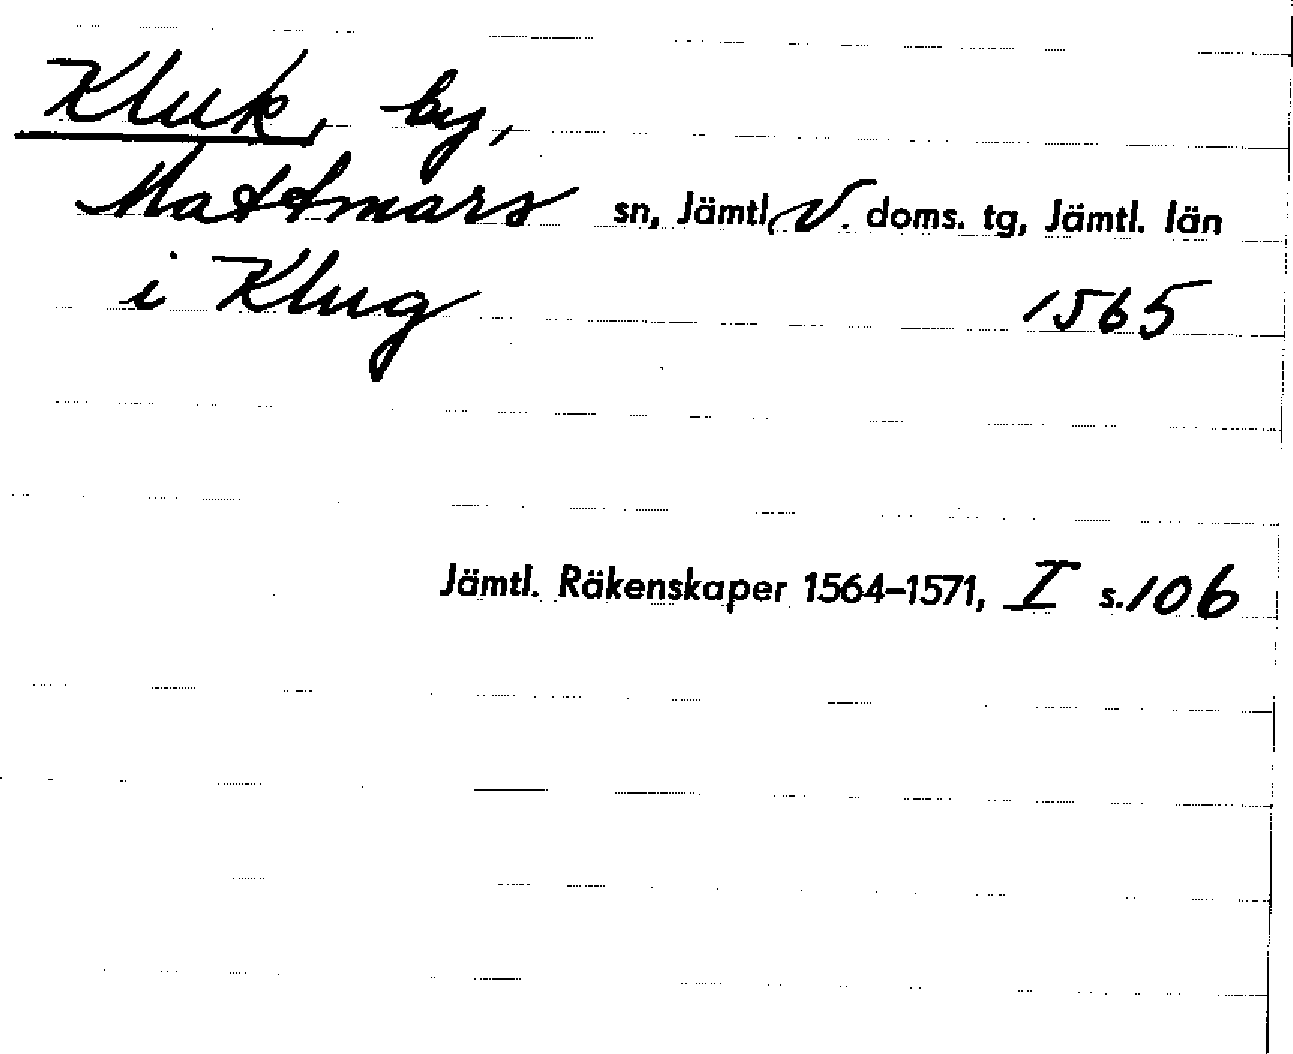 Kluk, by,
Mattmars sn, Jämtl. V. doms. tg, Jämtl. län
i Klug 1565
Jämtl. Räkenskaper 1564–1571, I s. 106